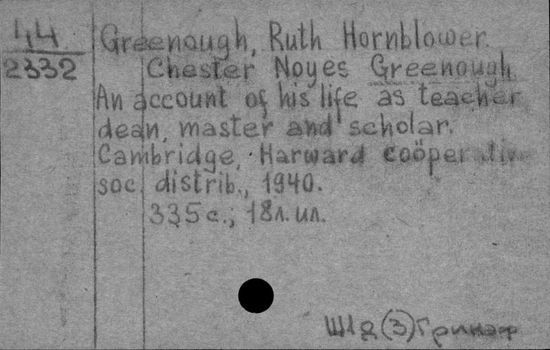 44
2332
Greenough, Ruth Hornblower.
Chester Noyes Greenough
An account of his life as teacher
dean, master and scholar.
Cambridge, Harward coöperative
soc. distrib., 1940.
335 с.; 18 л. ил.
Ш1д(3)Гринаф